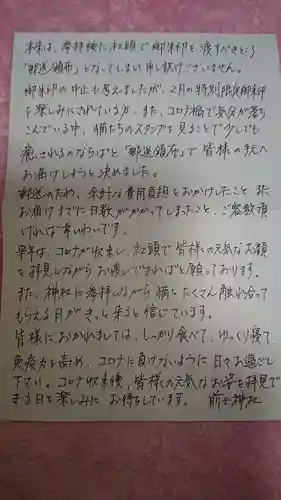 本来は、参拝後に社頭で御朱印を渡すべきところ
「郵送頒布」となってしまい申し訳ございません。
御朱印の中止も考えましたが、2月の特別限定御朱印
を楽しみにされている方、また、コロナ禍で気分が落ち
こんでいる中、猫たちのスタンプを見ることで少しでも
癒されるのならばと「郵送頒布」で皆様の手元へ
お届けしようと決めました。
郵送のため、余計な費用負担をおかけしたこと、また
お届けまでに日数がかかってしまったこと、ご容赦頂
ければ幸いです。
来年は、コロナが収束し、社頭で皆様の元気なお顔
を拝見しながらお渡しできればと願っております。
また、神社に参拝しながら猫とたくさん触れ合って
もらえる日がきっと来ると信じています。
皆様におかれましては、しっかり食べて、ゆっくり寝て、
免疫力を高め、コロナに負けないように日々お過ごし
下さい。コロナ収束後、皆様の元気なお姿を拝見で
きる日を楽しみにお待ちしています。 前玉神社